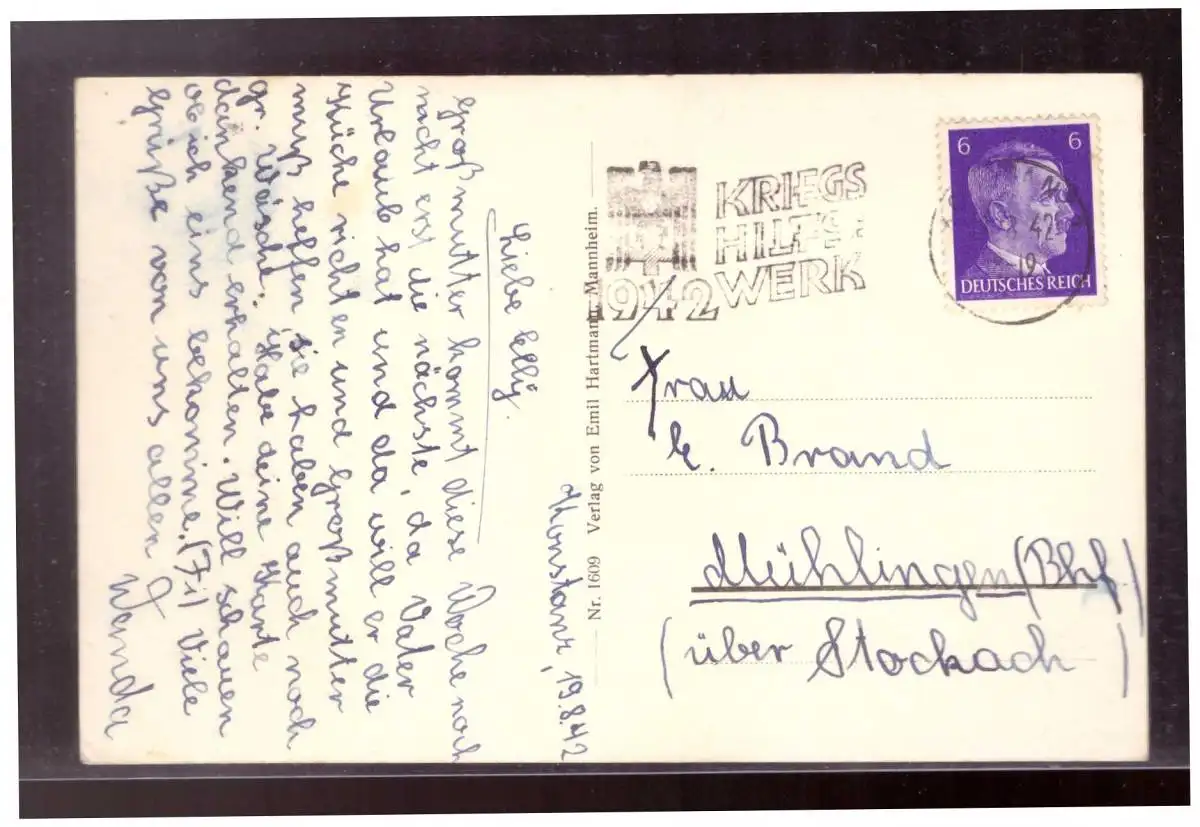 Konstanz, 19.8.42
Liebe Elly.
Großmutter kommt diese Woche noch
nicht erst die nächste, da Vater
Urlaub hat und da will er die
Küche richten und Großmutter
muß helfen sie haben auch noch
gr. Wäsche. Habe deine Karte
dankend erhalten. Will schauen
ob ich eins bekomme. Viele
Grüße von uns allen
Wanda
Nr. 1609 Verlag von Emil Hartmann, Mannheim.
KRIEGS
HILFS-
WERK
1942
6 6
DEUTSCHES REICH
42
19
Frau
E. Brand
Mühlingen (Bhf.)
(über Stockach)